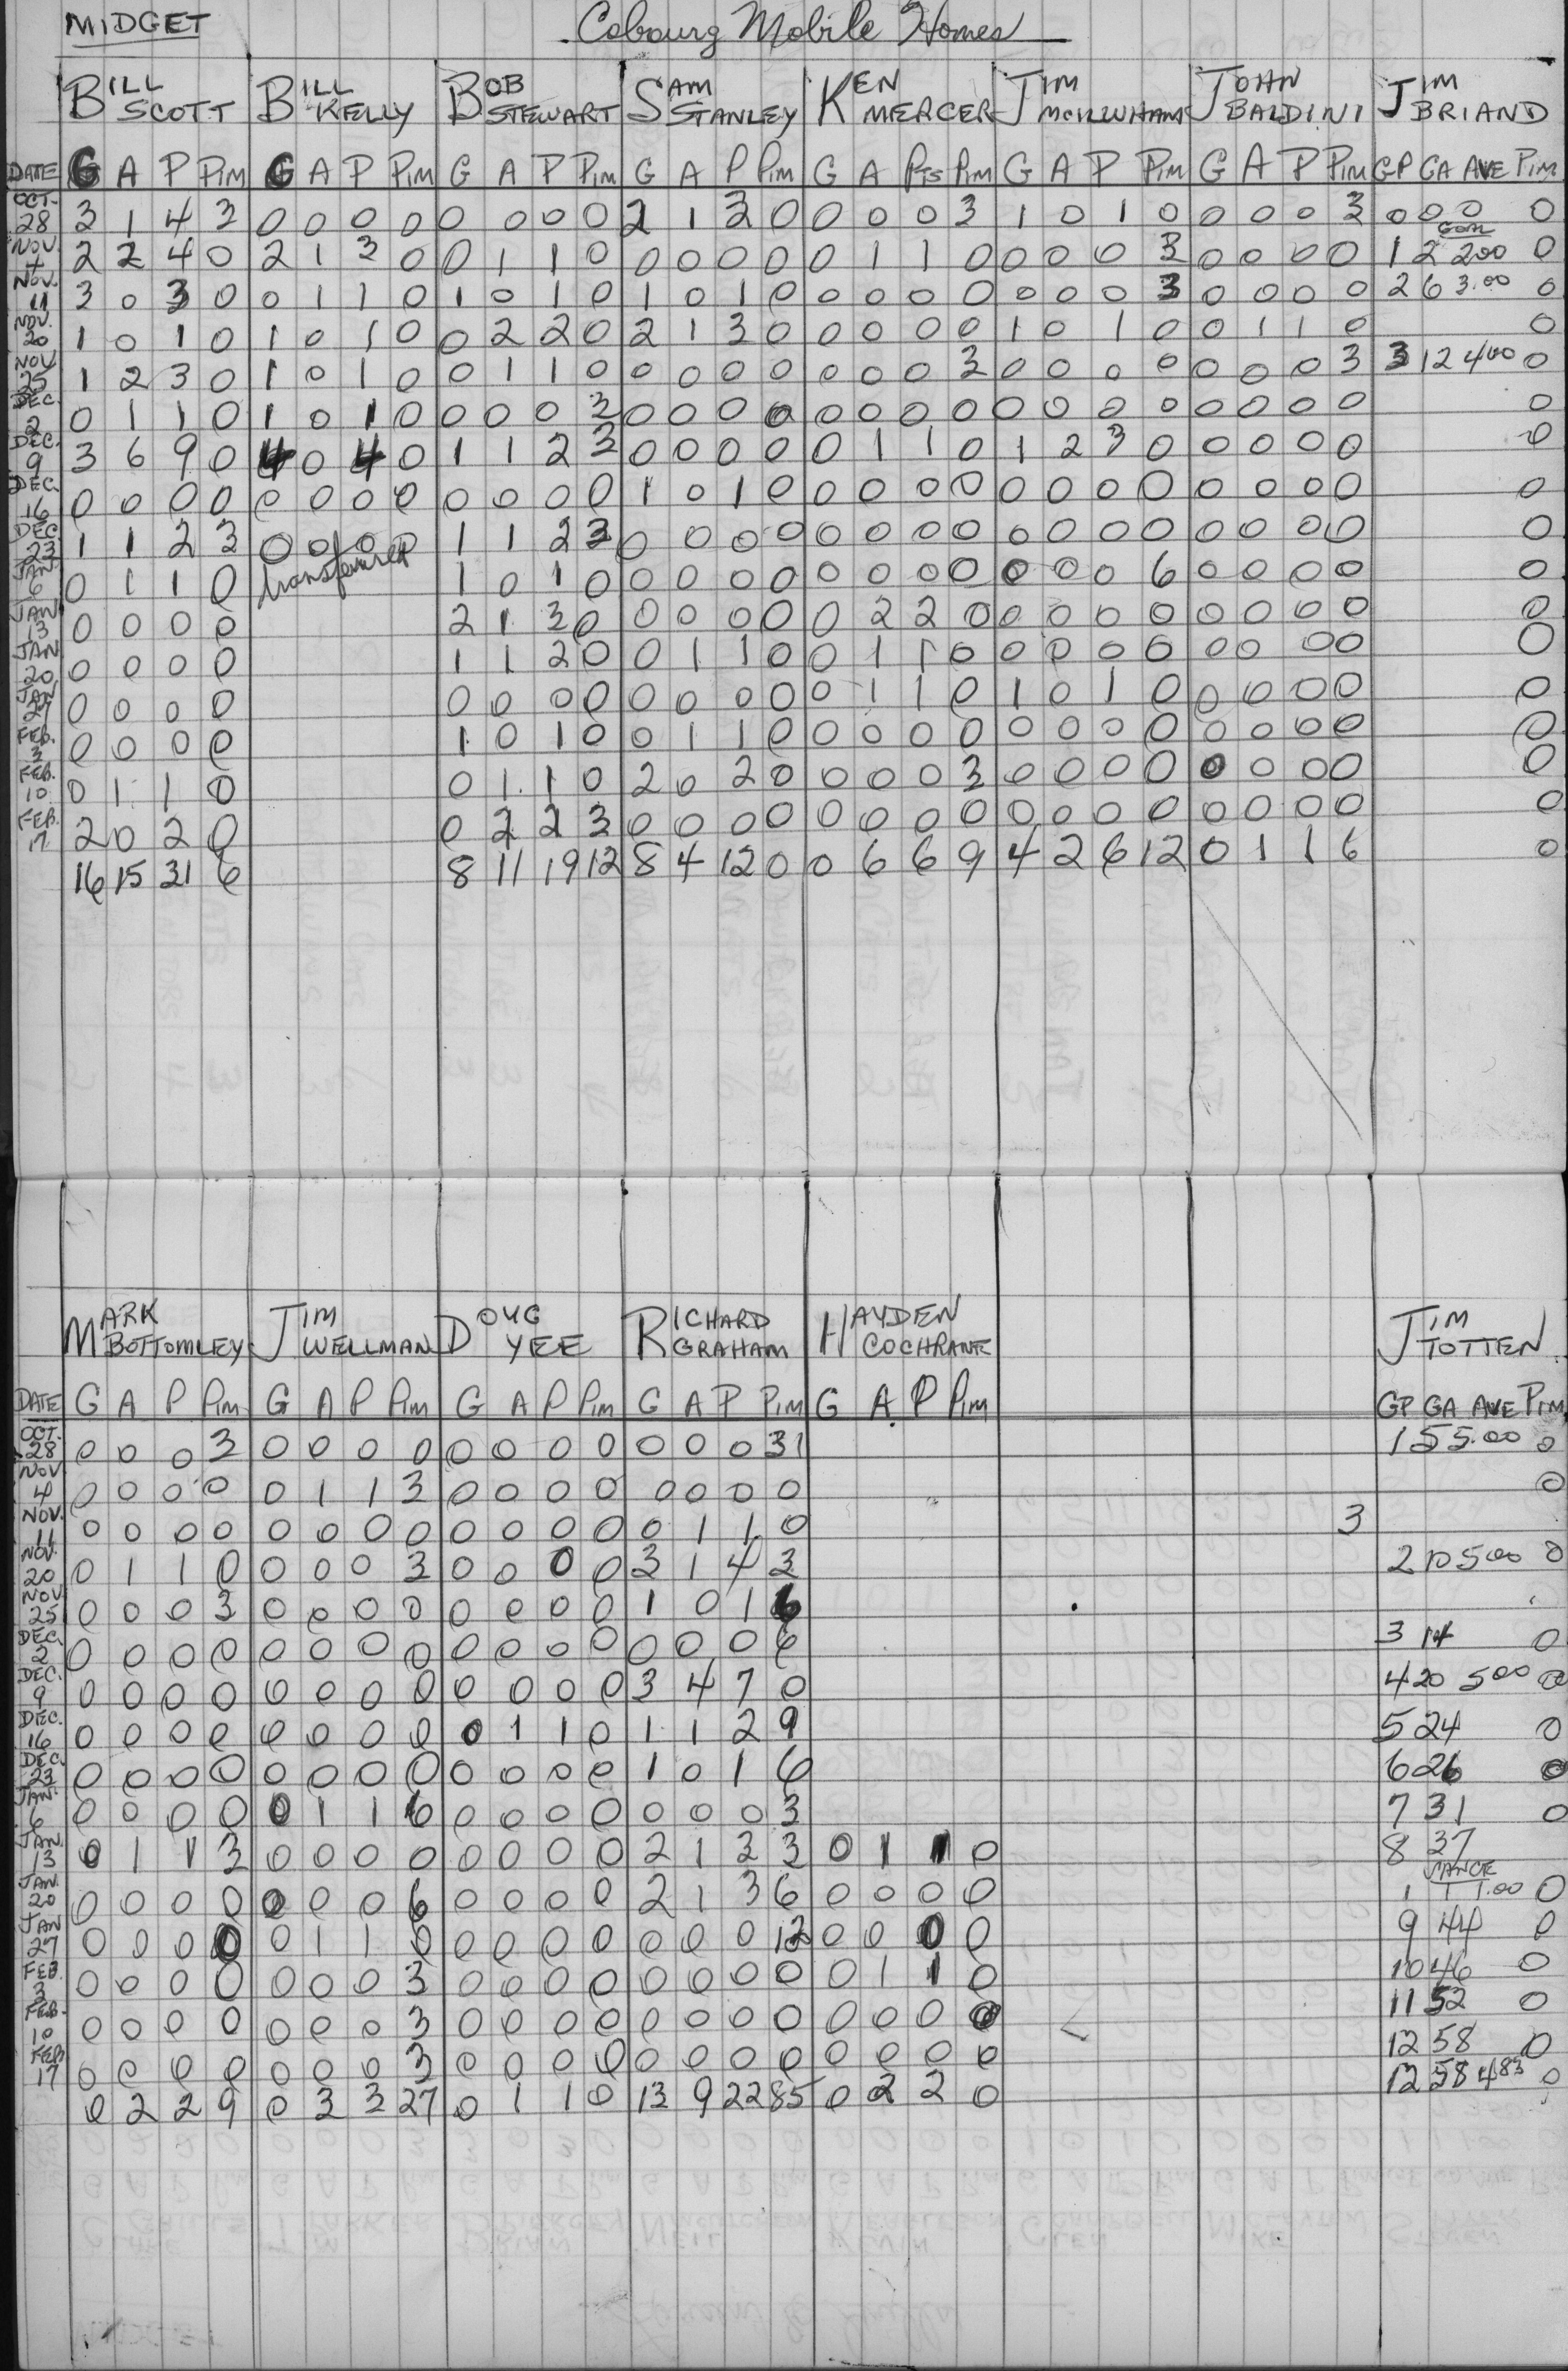 MIDGET
Cobourg Mobile Homes
BILL SCOTT BILL KELLY BOB STEWART SAM STANLEY KEN MERCER JIM MCILWHAM JOHN BALDINI JIM BRIAND
DATE G A P PIM G A P PIM G A P PIM G A P PIM G A PTS PIM G A P PIM G A P PIM GP GA AVE PIM
OCT. 28 3 1 4 3 0 0 0 0 0 0 0 0 2 1 3 0 0 0 0 3 1 0 1 0 0 0 0 3 0 0 0 0
NOV. 4 2 2 4 0 2 1 3 0 0 1 1 0 0 0 0 0 0 1 1 0 0 0 0 3 0 0 0 0 1 2 2.00 0
NOV. 11 3 0 3 0 0 1 1 0 1 0 1 0 1 0 1 0 0 0 0 0 0 0 0 3 0 0 0 0 2 6 3.00 0
NOV. 20 1 0 1 0 1 0 1 0 0 2 2 0 2 1 3 0 0 0 0 0 1 0 1 0 0 1 1 0 0
NOV 25 1 2 3 0 1 0 1 0 0 1 1 0 0 0 0 0 0 0 0 3 0 0 0 0 0 0 0 3 3 12 4.00 0
DEC. 2 0 1 1 0 1 0 1 0 0 0 0 3 0 0 0 0 0 0 0 0 0 0 0 0 0 0 0 0 0
DEC. 9 3 6 9 0 4 0 4 0 1 1 2 3 0 0 0 0 0 1 1 0 1 2 3 0 0 0 0 0 0
DEC. 16 0 0 0 0 0 0 0 0 0 0 0 0 1 0 1 0 0 0 0 0 0 0 0 0 0 0 0 0 0
DEC. 23 1 1 2 3 0 0 0 0 1 1 2 3 0 0 0 0 0 0 0 0 0 0 0 0 0 0 0 0 0
JAN 6 0 1 1 0 transferred 1 0 1 0 0 0 0 0 0 0 0 0 0 0 0 6 0 0 0 0 0
JAN 13 0 0 0 0 2 1 3 0 0 0 0 0 0 2 2 0 0 0 0 0 0 0 0 0 0
JAN 20 0 0 0 0 1 1 2 0 0 1 1 0 0 1 1 0 0 0 0 0 0 0 0 0 0
JAN 27 0 0 0 0 0 0 0 0 0 0 0 0 0 1 1 0 1 0 1 0 0 0 0 0 0
FEB. 3 0 0 0 0 1 0 1 0 0 1 1 0 0 0 0 0 0 0 0 0 0 0 0 0 0
FEB. 10 0 1 1 0 0 1 1 0 2 0 2 0 0 0 0 3 0 0 0 0 0 0 0 0 0
FEB. 17 2 0 2 0 0 2 2 3 0 0 0 0 0 0 0 0 0 0 0 0 0 0 0 0 0
16 15 31 6 8 11 19 12 8 4 12 0 0 6 6 9 4 2 6 12 0 1 1 6 0
MARK BOTTOMLEY JIM WELLMAN DOUG YEE RICHARD GRAHAM HAYDEN COCHRANE JIM TOTTEN
DATE G A P PIM G A P PIM G A P PIM G A P PIM G A P PIM GP GA AVE PIM
OCT. 28 0 0 0 3 0 0 0 0 0 0 0 0 0 0 0 31 1 5 5.00 0
NOV 4 0 0 0 0 0 1 1 3 0 0 0 0 0 0 0 0 0
NOV. 11 0 0 0 0 0 0 0 0 0 0 0 0 0 1 1 0 3
NOV. 20 0 1 1 0 0 0 0 3 0 0 0 0 3 1 4 3 2 10 5.00 0
NOV 25 0 0 0 3 0 0 0 0 0 0 0 0 1 0 1 6
DEC. 2 0 0 0 0 0 0 0 0 0 0 0 0 0 0 0 6 3 14 0
DEC. 9 0 0 0 0 0 0 0 0 0 0 0 0 3 4 7 0 4 20 5.00 0
DEC. 16 0 0 0 0 0 0 0 0 0 1 1 0 1 1 2 9 5 24 0
DEC. 23 0 0 0 0 0 0 0 0 0 0 0 0 1 0 1 6 6 26 0
JAN. 6 0 0 0 0 0 1 1 6 0 0 0 0 0 0 0 3 7 31 0
JAN. 13 0 1 1 3 0 0 0 0 0 0 0 0 2 1 3 3 0 1 1 0 8 37
JAN. 20 0 0 0 0 0 0 0 6 0 0 0 0 2 1 3 6 0 0 0 0 1 1 1.00 0
JAN 27 0 0 0 0 0 1 1 0 0 0 0 0 0 0 0 12 0 0 0 0 9 44 0
FEB. 3 0 0 0 0 0 0 0 3 0 0 0 0 0 0 0 0 0 1 1 0 10 46 0
FEB. 10 0 0 0 0 0 0 0 3 0 0 0 0 0 0 0 0 0 0 0 0 11 52 0
FEB 17 0 0 0 0 0 0 0 3 0 0 0 0 0 0 0 0 0 0 0 0 12 58 0
0 2 2 9 0 3 3 27 0 1 1 0 13 9 22 85 0 2 2 0 12 58 4.83 0